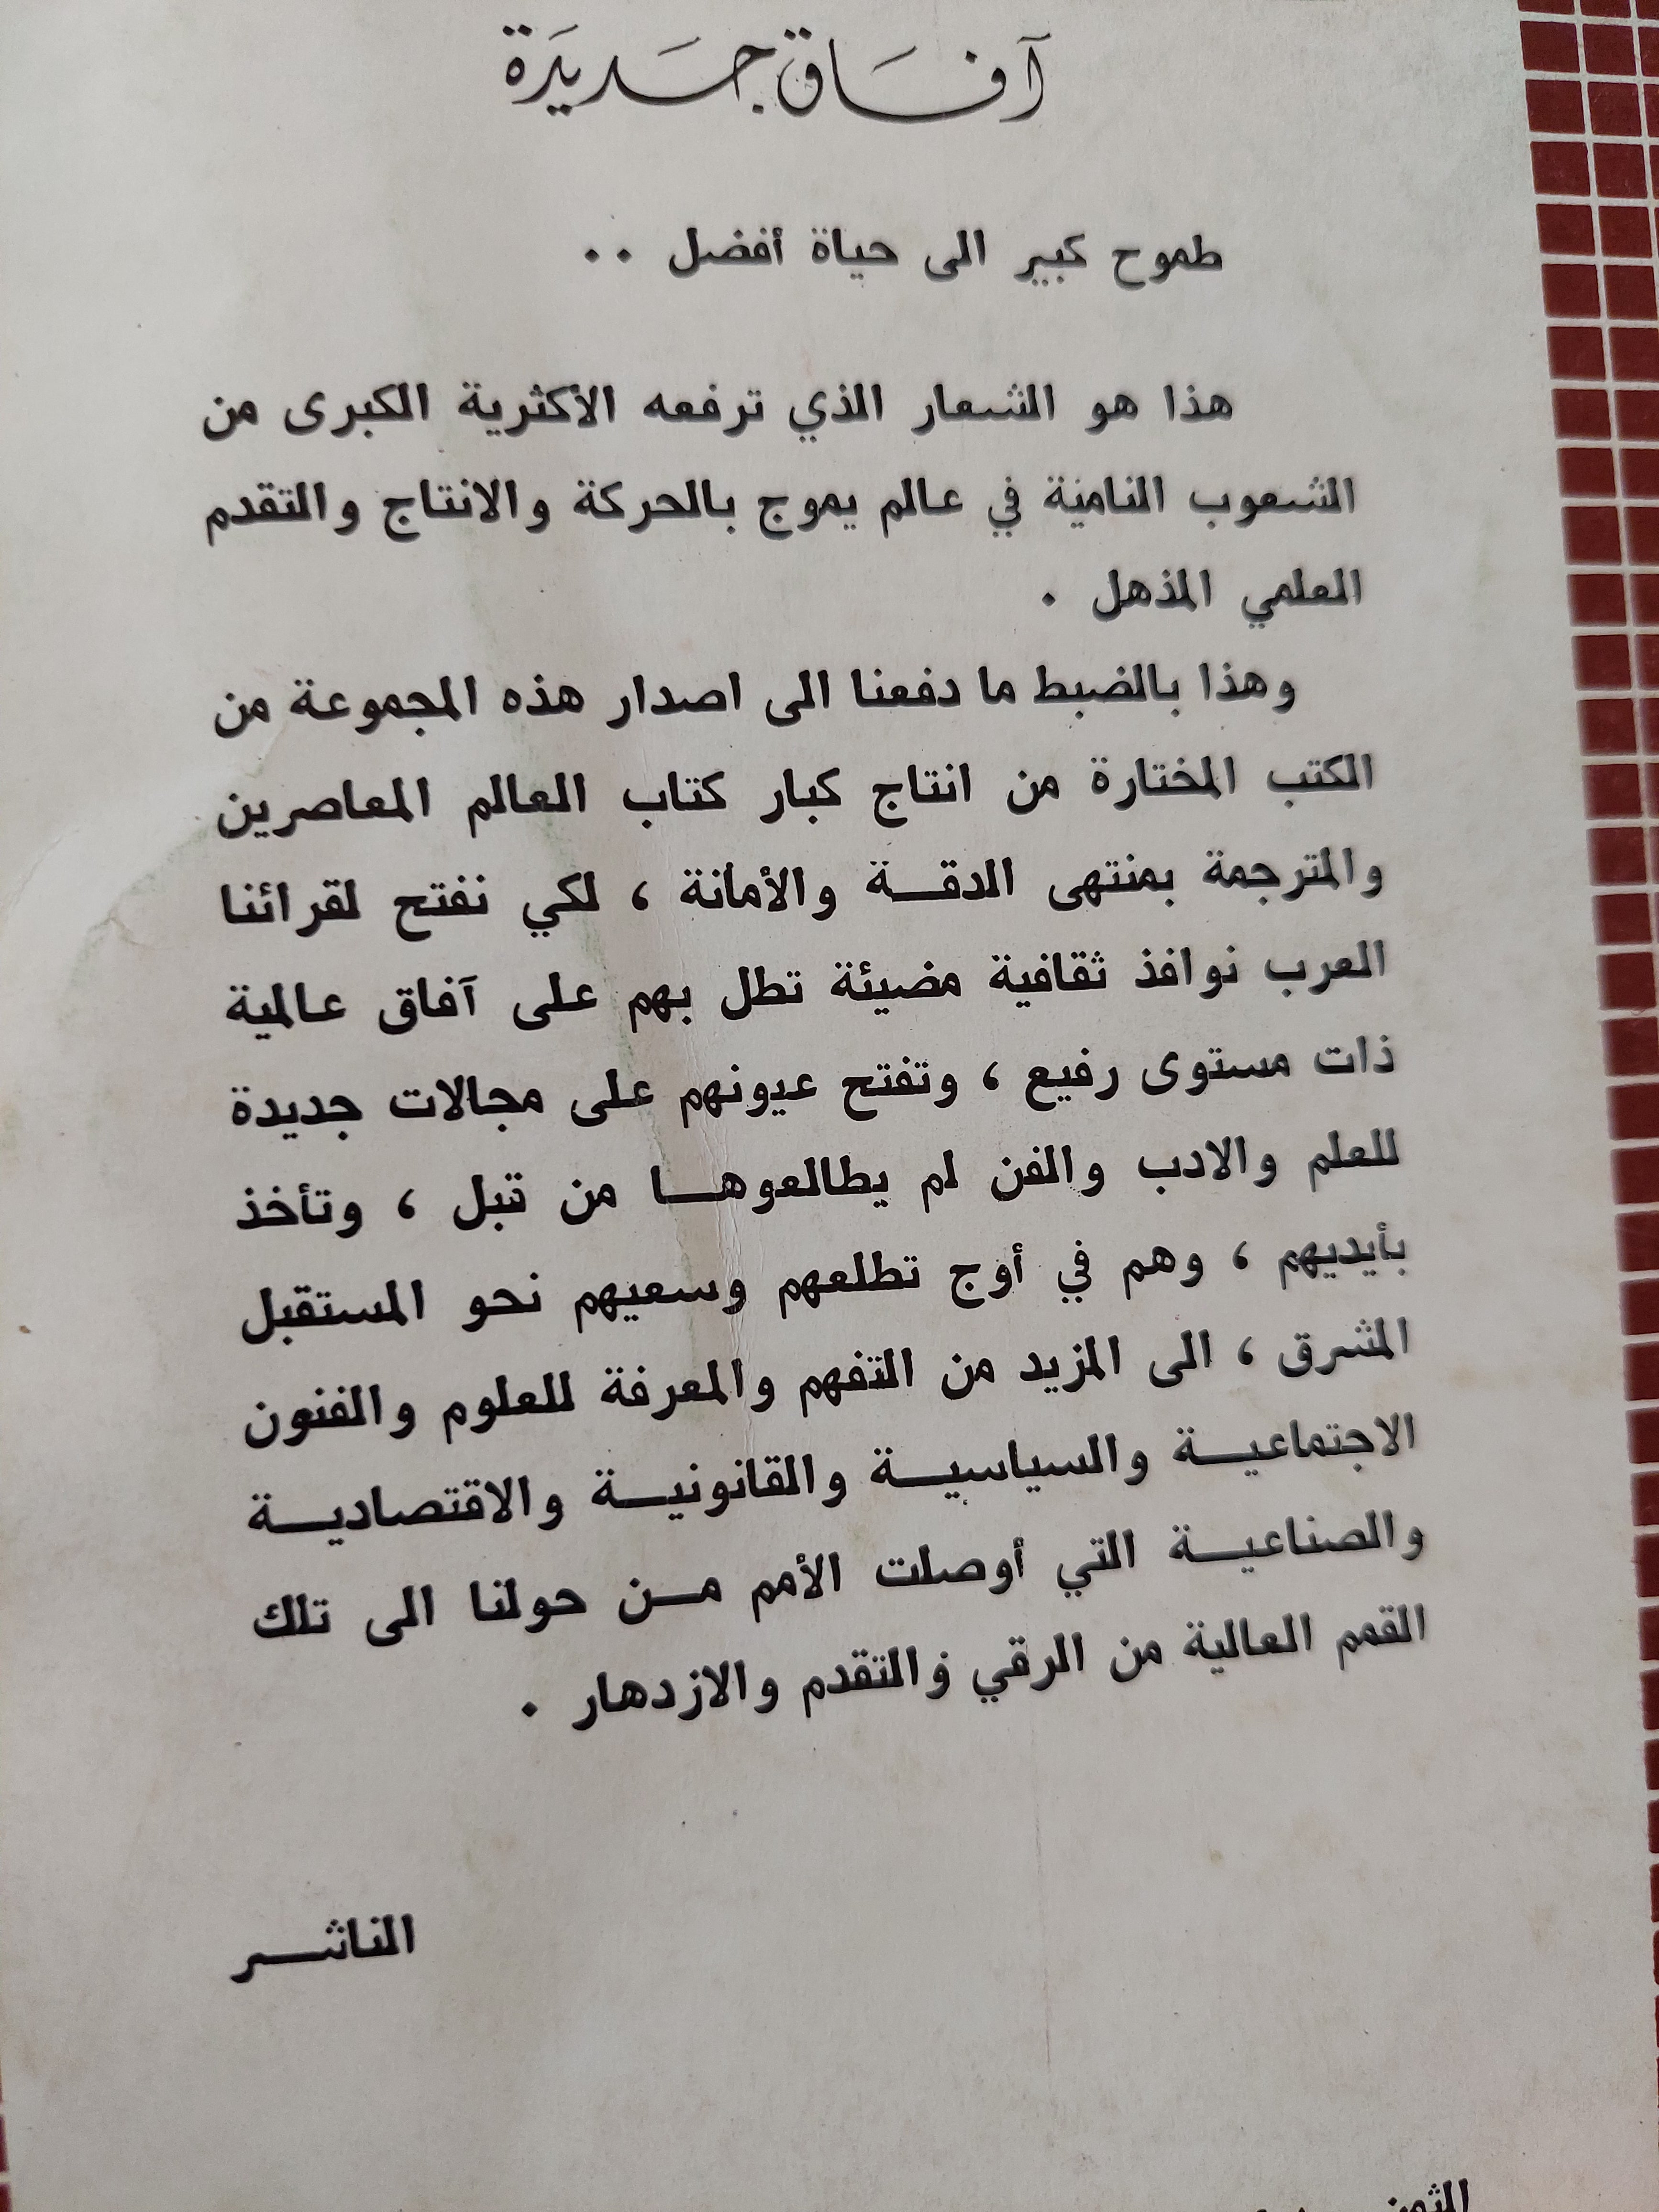 آفاق جديدة
طموح كبير الى حياة أفضل ..
هذا هو الشعار الذي ترفعه الاكثرية الكبرى من
الشعوب النامية في عالم يموج بالحركة والانتاج والتقدم
العلمي المذهل .
وهذا بالضبط ما دفعنا الى اصدار هذه المجموعة من
الكتب المختارة من انتاج كبار كتاب العالم المعاصرين
والمترجمة بمنتهى الدقة والأمانة ، لكي نفتح لقرائنا
العرب نوافذ ثقافية مضيئة تطل بهم على آفاق عالمية
ذات مستوى رفيع ، وتفتح عيونهم على مجالات جديدة
للعلم والادب والفن لم يطالعوها من قبل ، وتأخذ
بأيديهم ، وهم في أوج تطلعهم وسعيهم نحو المستقبل
المشرق ، الى المزيد من التفهم والمعرفة للعلوم والفنون
الاجتماعية والسياسية والقانونية والاقتصادية
والصناعية التي أوصلت الأمم من حولنا الى تلك
القمم العالية من الرقي والتقدم والازدهار .
الناشر